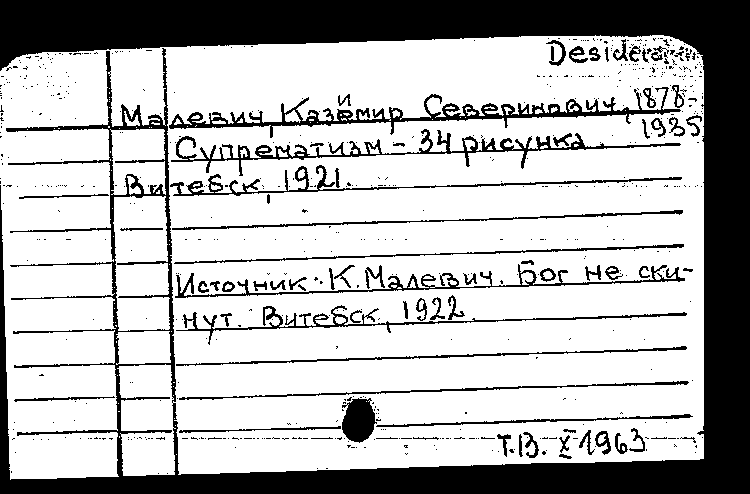 Desiderata
Малевич, Казимир Северинович, 1878-
1935
Супрематизм - 34 рисунка.
Витебск, 1921.
Источник: К. Малевич. Бог не ски-
нут. Витебск, 1922.
Т.В. X 1963